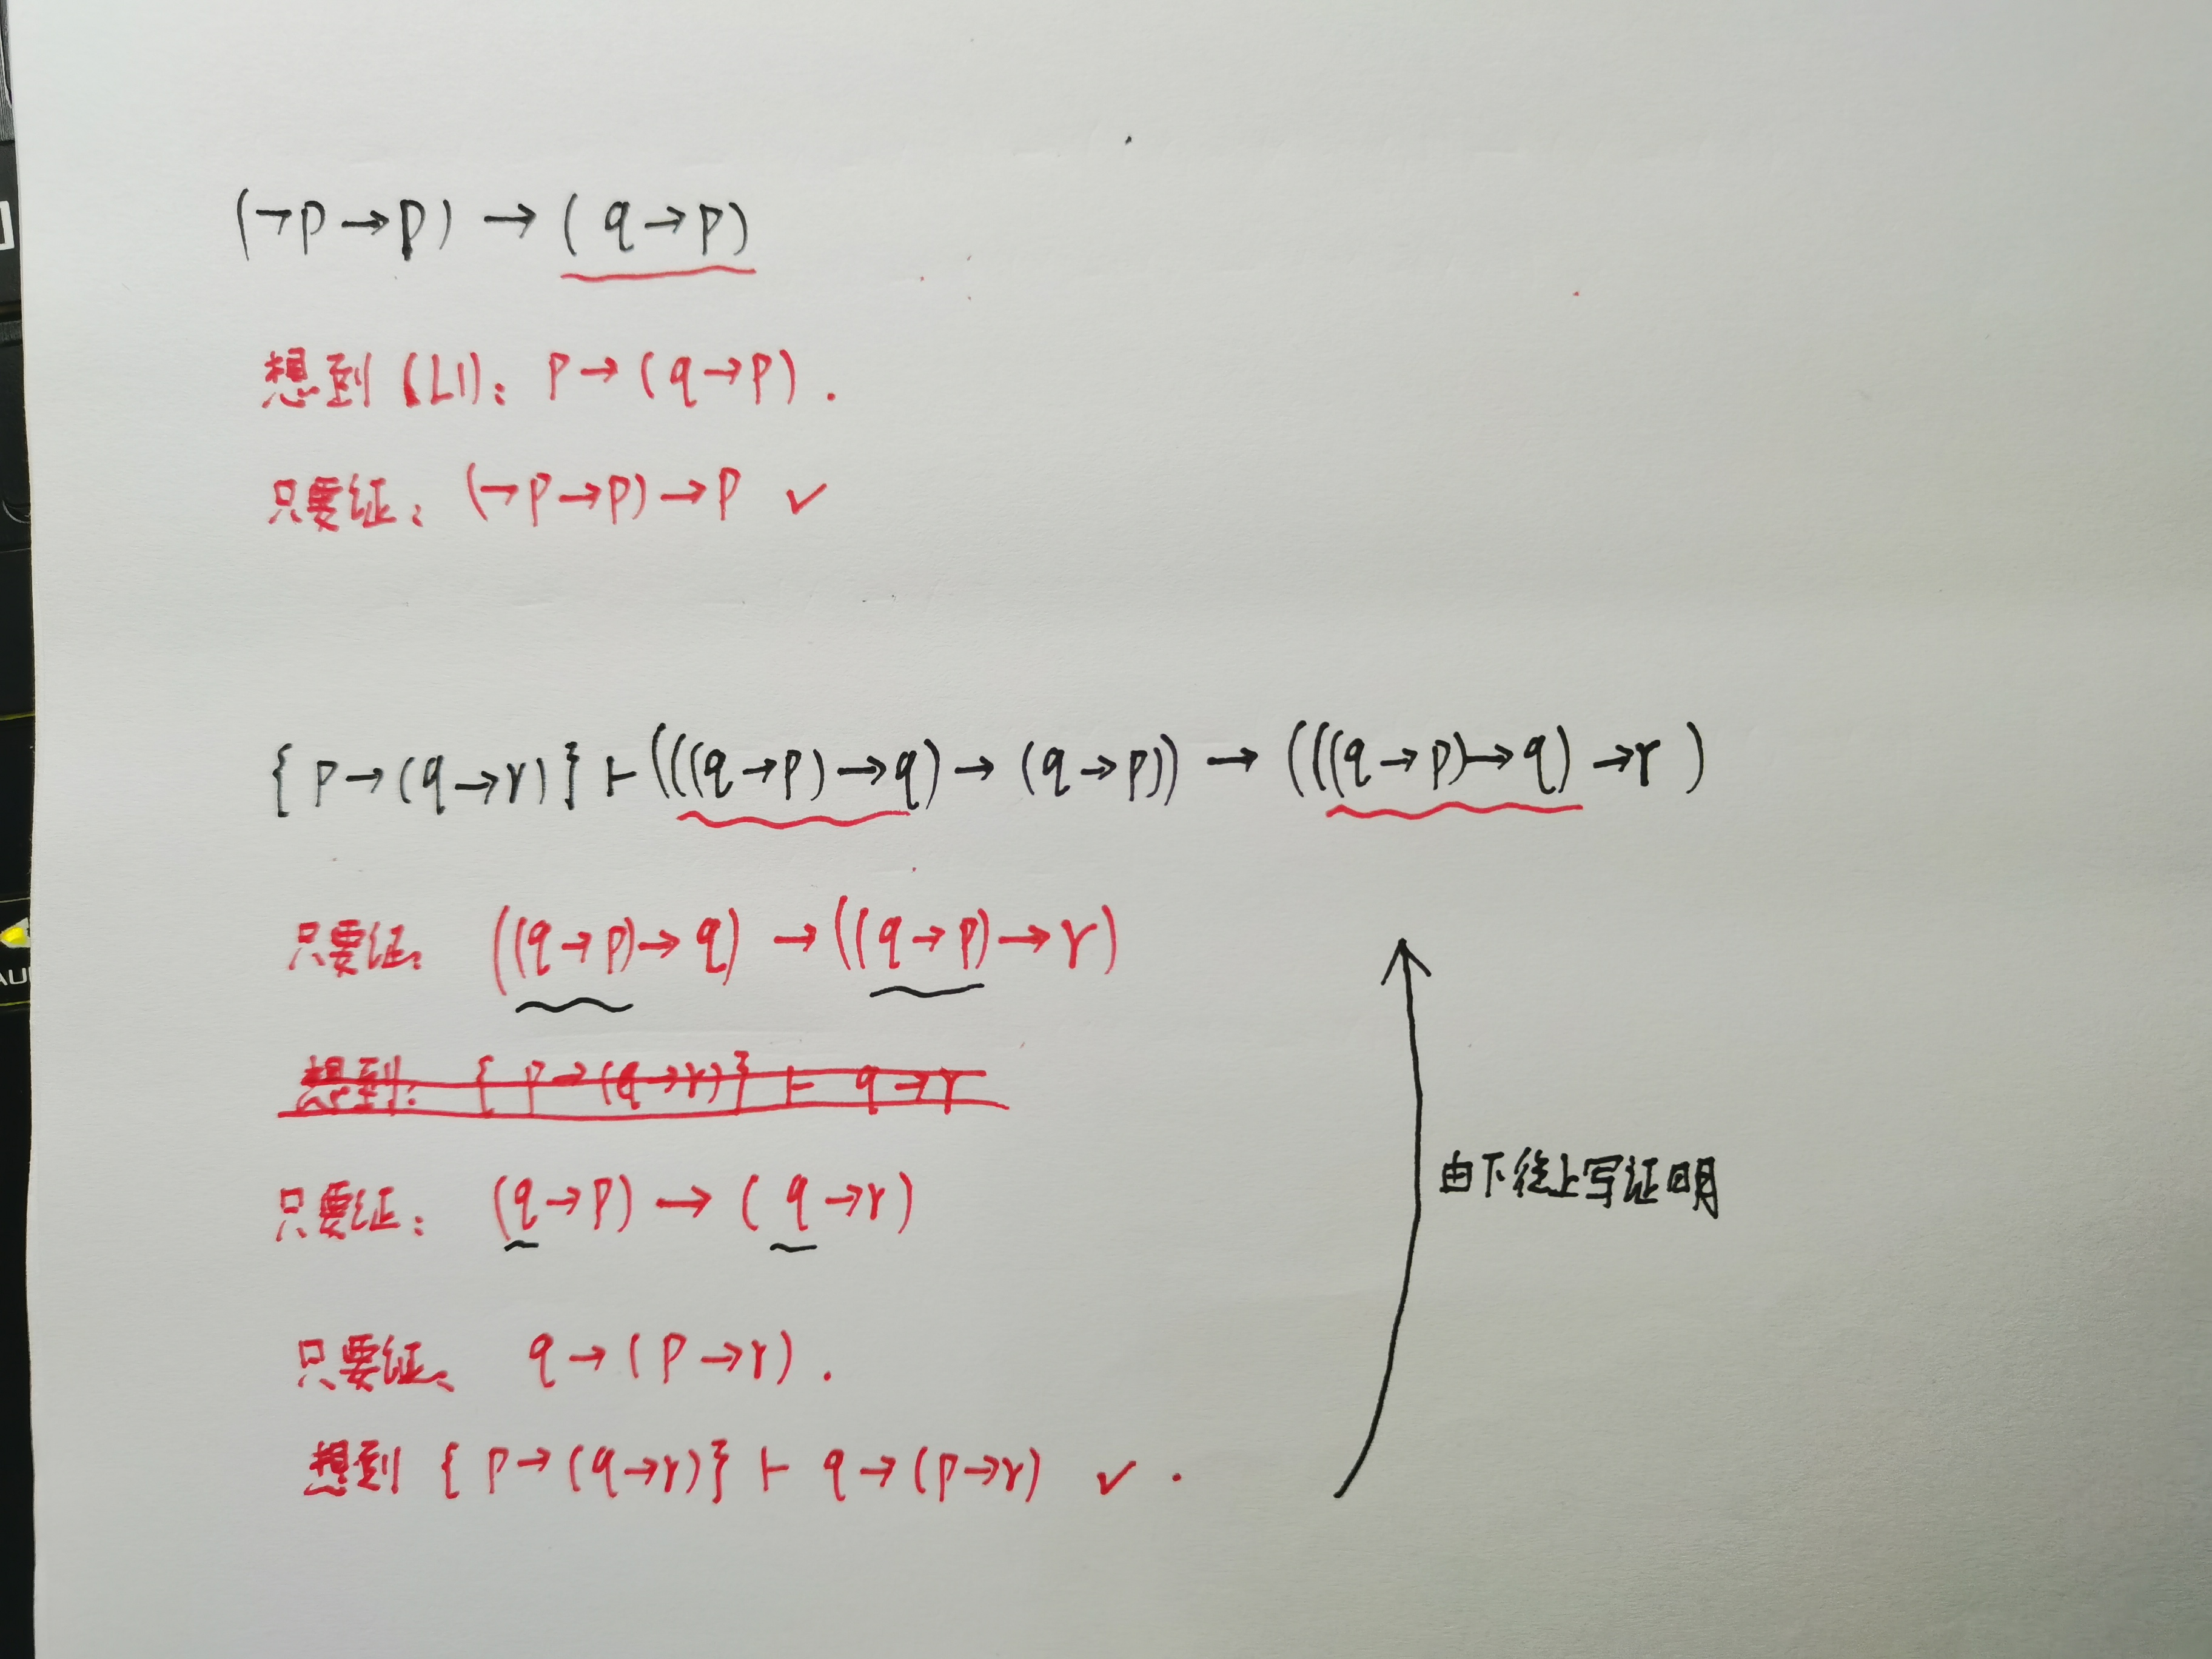 (¬p→p)→(q→p)
想到(L1): p→(q→p).
只要证: (¬p→p)→p ✓
{p→(q→r)}⊢(((q→p)→q)→(q→p))→(((q→p)→q)→r)
只要证: ((q→p)→q)→((q→p)→r)
想到: {p→(q→r)}⊢q→r
只要证: (q→p)→(q→r)
由下往上写证明
只要证、 q→(p→r).
想到{p→(q→r)}⊢q→(p→r) ✓.